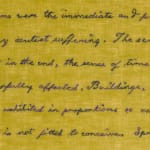 ions were the immediate and p
my acutest suffering. The se
in the end, the sense of time
erfully affected. Buildings,
exhibited in proportions so va
is not fitted to conceive. Spa